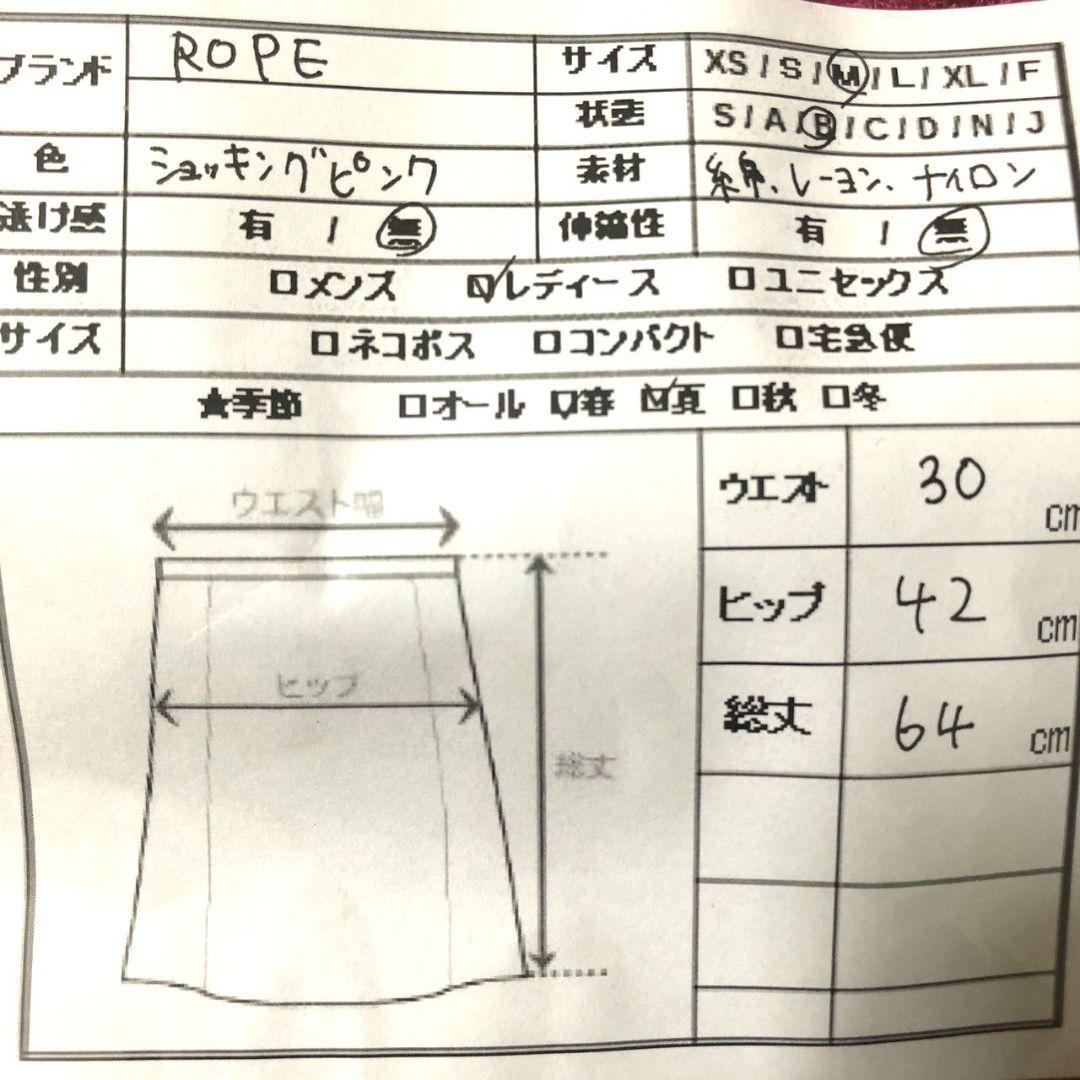 ブランド ROPE サイズ XS / S / M / L / XL / F
状態 S / A / B / C / D / N / J
色 ショッキングピンク 素材 綿、レーヨン、ナイロン
透け感 有 / 無 伸縮性 有 / 無
性別 □メンズ ☑レディース □ユニセックス
サイズ □ネコポス □コンパクト □宅急便
★季節 □オール ☑春 ☑夏 □秋 □冬
ウエスト幅
ヒップ
総丈
ウエスト 30 cm
ヒップ 42 cm
総丈 64 cm